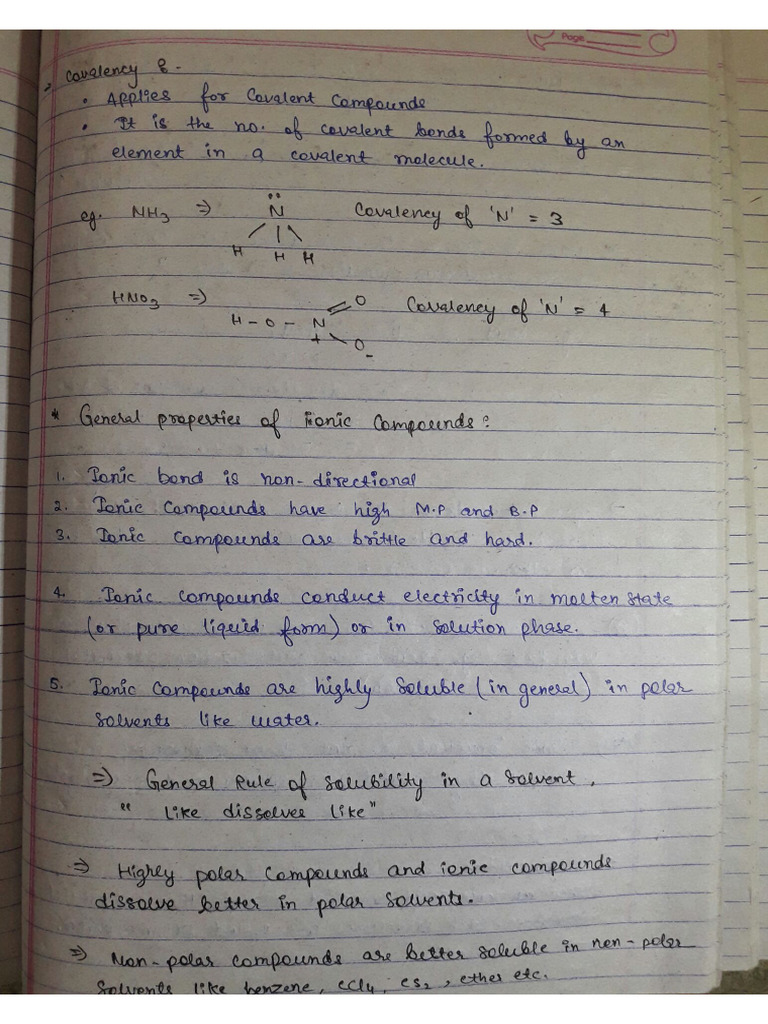 Page
Covalency :-
• Applies for Covalent Compounds
• It is the no. of covalent bonds formed by an
element in a covalent molecule.
eg. NH3 ⇒ N Covalency of 'N' = 3
H H H
HNO3 ⇒ H - O - N O Covalency of 'N' = 4
+ O-
* General properties of ionic compounds:
1. Ionic bond is non-directional
2. Ionic compounds have high M.P and B.P
3. Ionic compounds are brittle and hard.
4. Ionic compounds conduct electricity in molten state
(or pure liquid form) or in solution phase.
5. Ionic compounds are highly soluble (in general) in polar
solvents like water.
⇒ General Rule of solubility in a solvent,
"like dissolves like"
⇒ Highly polar compounds and ionic compounds
dissolve better in polar solvents.
⇒ Non-polar compounds are better soluble in non-polar
solvents like benzene, CCl4, CS2, ether etc.